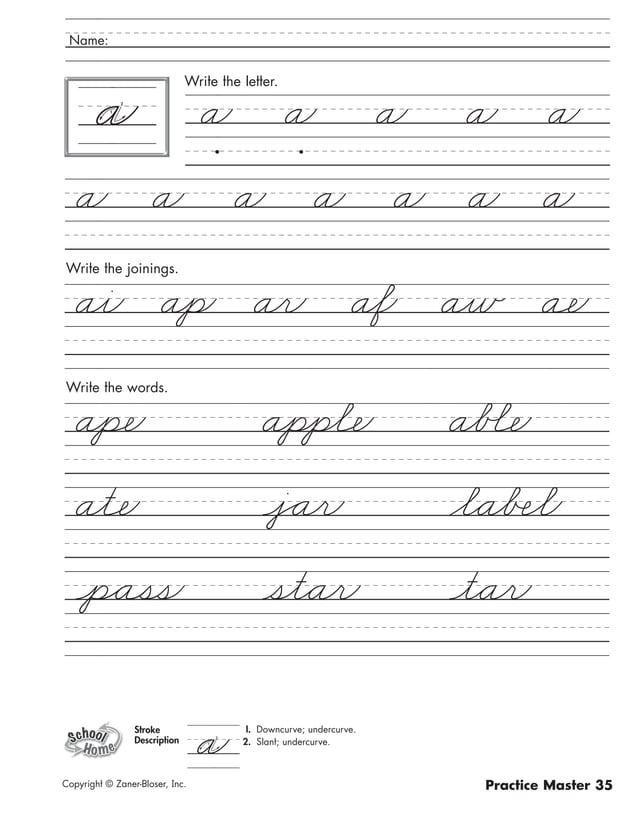 Name:
Write the letter.
a a a a a a
a a a a a a a
Write the joinings.
ai ap ar af aw ae
Write the words.
ape apple able
ate jar label
pass star tar
School Home
Stroke Description a 1. Downcurve; undercurve.
2. Slant; undercurve.
Copyright © Zaner-Bloser, Inc. Practice Master 35